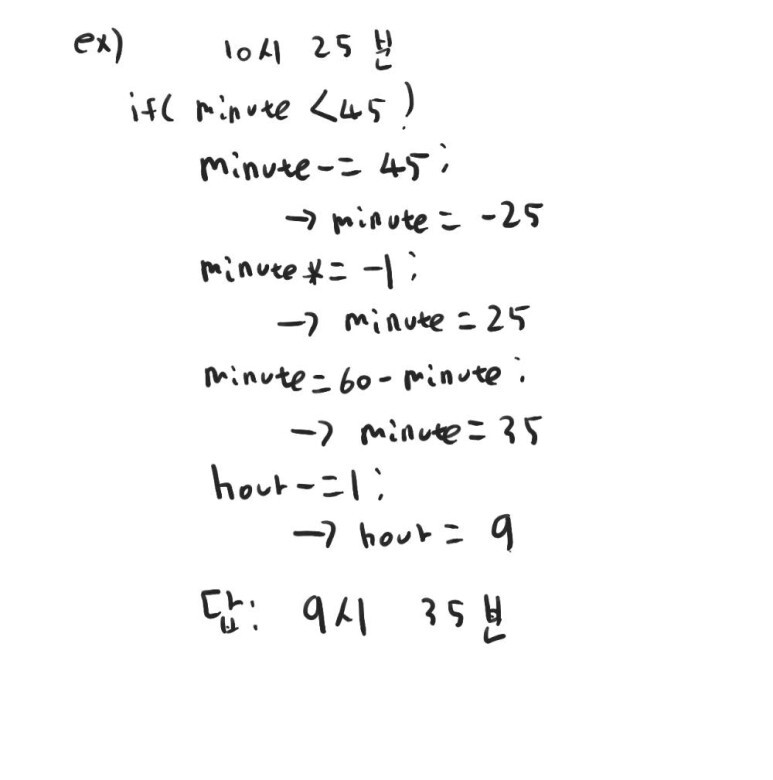 ex) 10시 25분
if( minute <45 )
minute-= 45;
→ minute = -25
minute*= -1;
→ minute = 25
minute=60-minute;
→ minute= 35
hour-=1;
→ hour = 9
답: 9시 35분